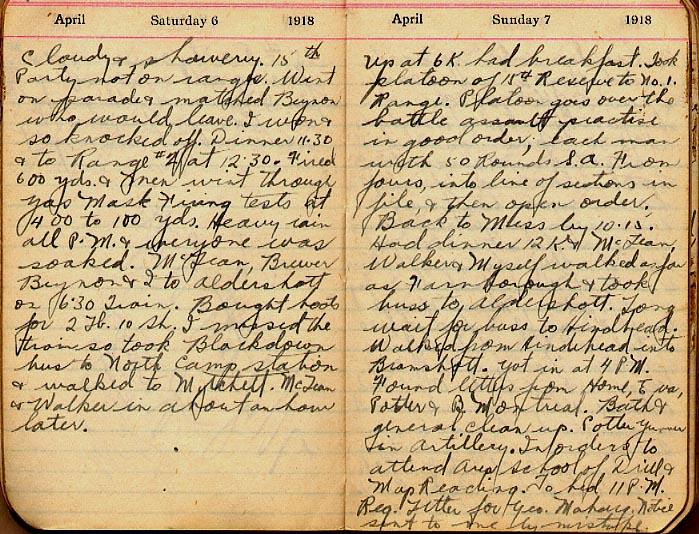 April Saturday 6 1918
Cloudy & showery. 15th
Party not on range. Went
on parade & matched Beynon
who would leave. I won &
so knocked off. Dinner 11.30
& to Range #2 at 12.30. Fired
600 yds. & then went through
gas Mask Firing tests at
400 to 100 yds. Heavy rain
all P.M. & everyone was
soaked. McLean, Brewer
Beynon & I to Aldershott
on 6.30 Train. Bought boots
for 2 lb. 10 sh. I missed the
train so took Blackdown
bus to North Camp station
& walked to Mytchett. McLean
& Walker in about an hour
later.
April Sunday 7 1918
Up at 6 K had breakfast. Took
platoon of 15th Reserve to No. 1.
Range. Platoon goes over the
battle assault practise
in good order, each man
with 50 Rounds S.A. From
fours, into line of sections in
file, & then open order.
Back to Mess by 10.15.
Had dinner 12 K & McLean,
Walker & Myself walked as far
as Farnborough & took
buss to Aldershott. Long
wait for buss to Hindhead.
Walked from Hindhead into
Bramshott. Got in at 4 P.M.
Found letters from Home,
Potter & B. Montreal. Bath &
general clean up. Potter
in Artillery. In orders to
attend School of Drill &
Map Reading. To bed 11 P.M.
Reg. Letter for Geo. Notice
sent to me by mistake.